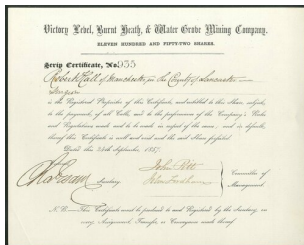 Victory Level, Burnt Heath, & Water Grove Mining Company.
ELEVEN HUNDRED AND FIFTY-TWO SHARES.
Scrip Certificate, No. 955
Robert Hall of Manchester, in the County of Lancaster
is the Registered Proprietor of this Certificate, and entitled to this Share, subject
to the payment of all Calls, and to the performance of the Company's Rules
and Regulations made and to be made in respect of the same, and in default,
thereof this Certificate is null and void and the said Share forfeited
Dated this 24th September, 1857.
Secretary.
John
Committee of
Management.
N.B.—This Certificate must be produced to and Registered by the Secretary, on
every Assignment, Transfer, or Conveyance made thereof